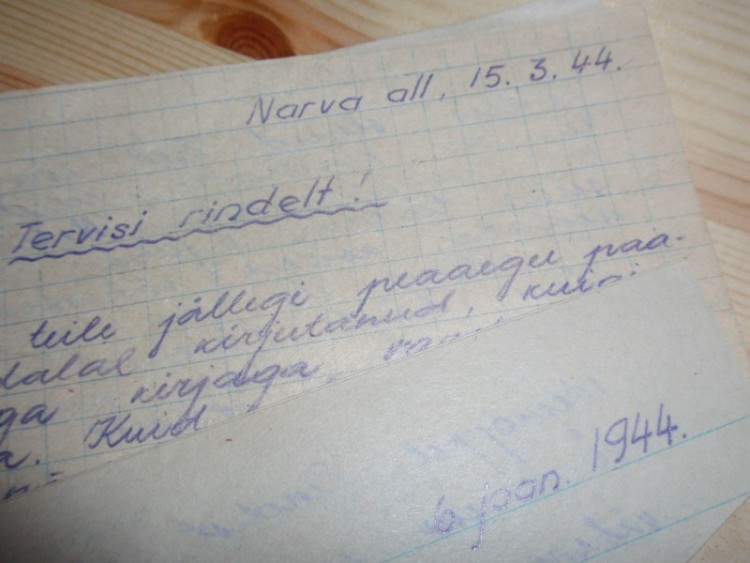 Narva all, 15. 3. 44.
Tervisi rindelt!
teile jällegi peaaegu paa-
dalal kirjutanud, kui
ga kirjaga,
a. Kuid
6. jaan. 1944.